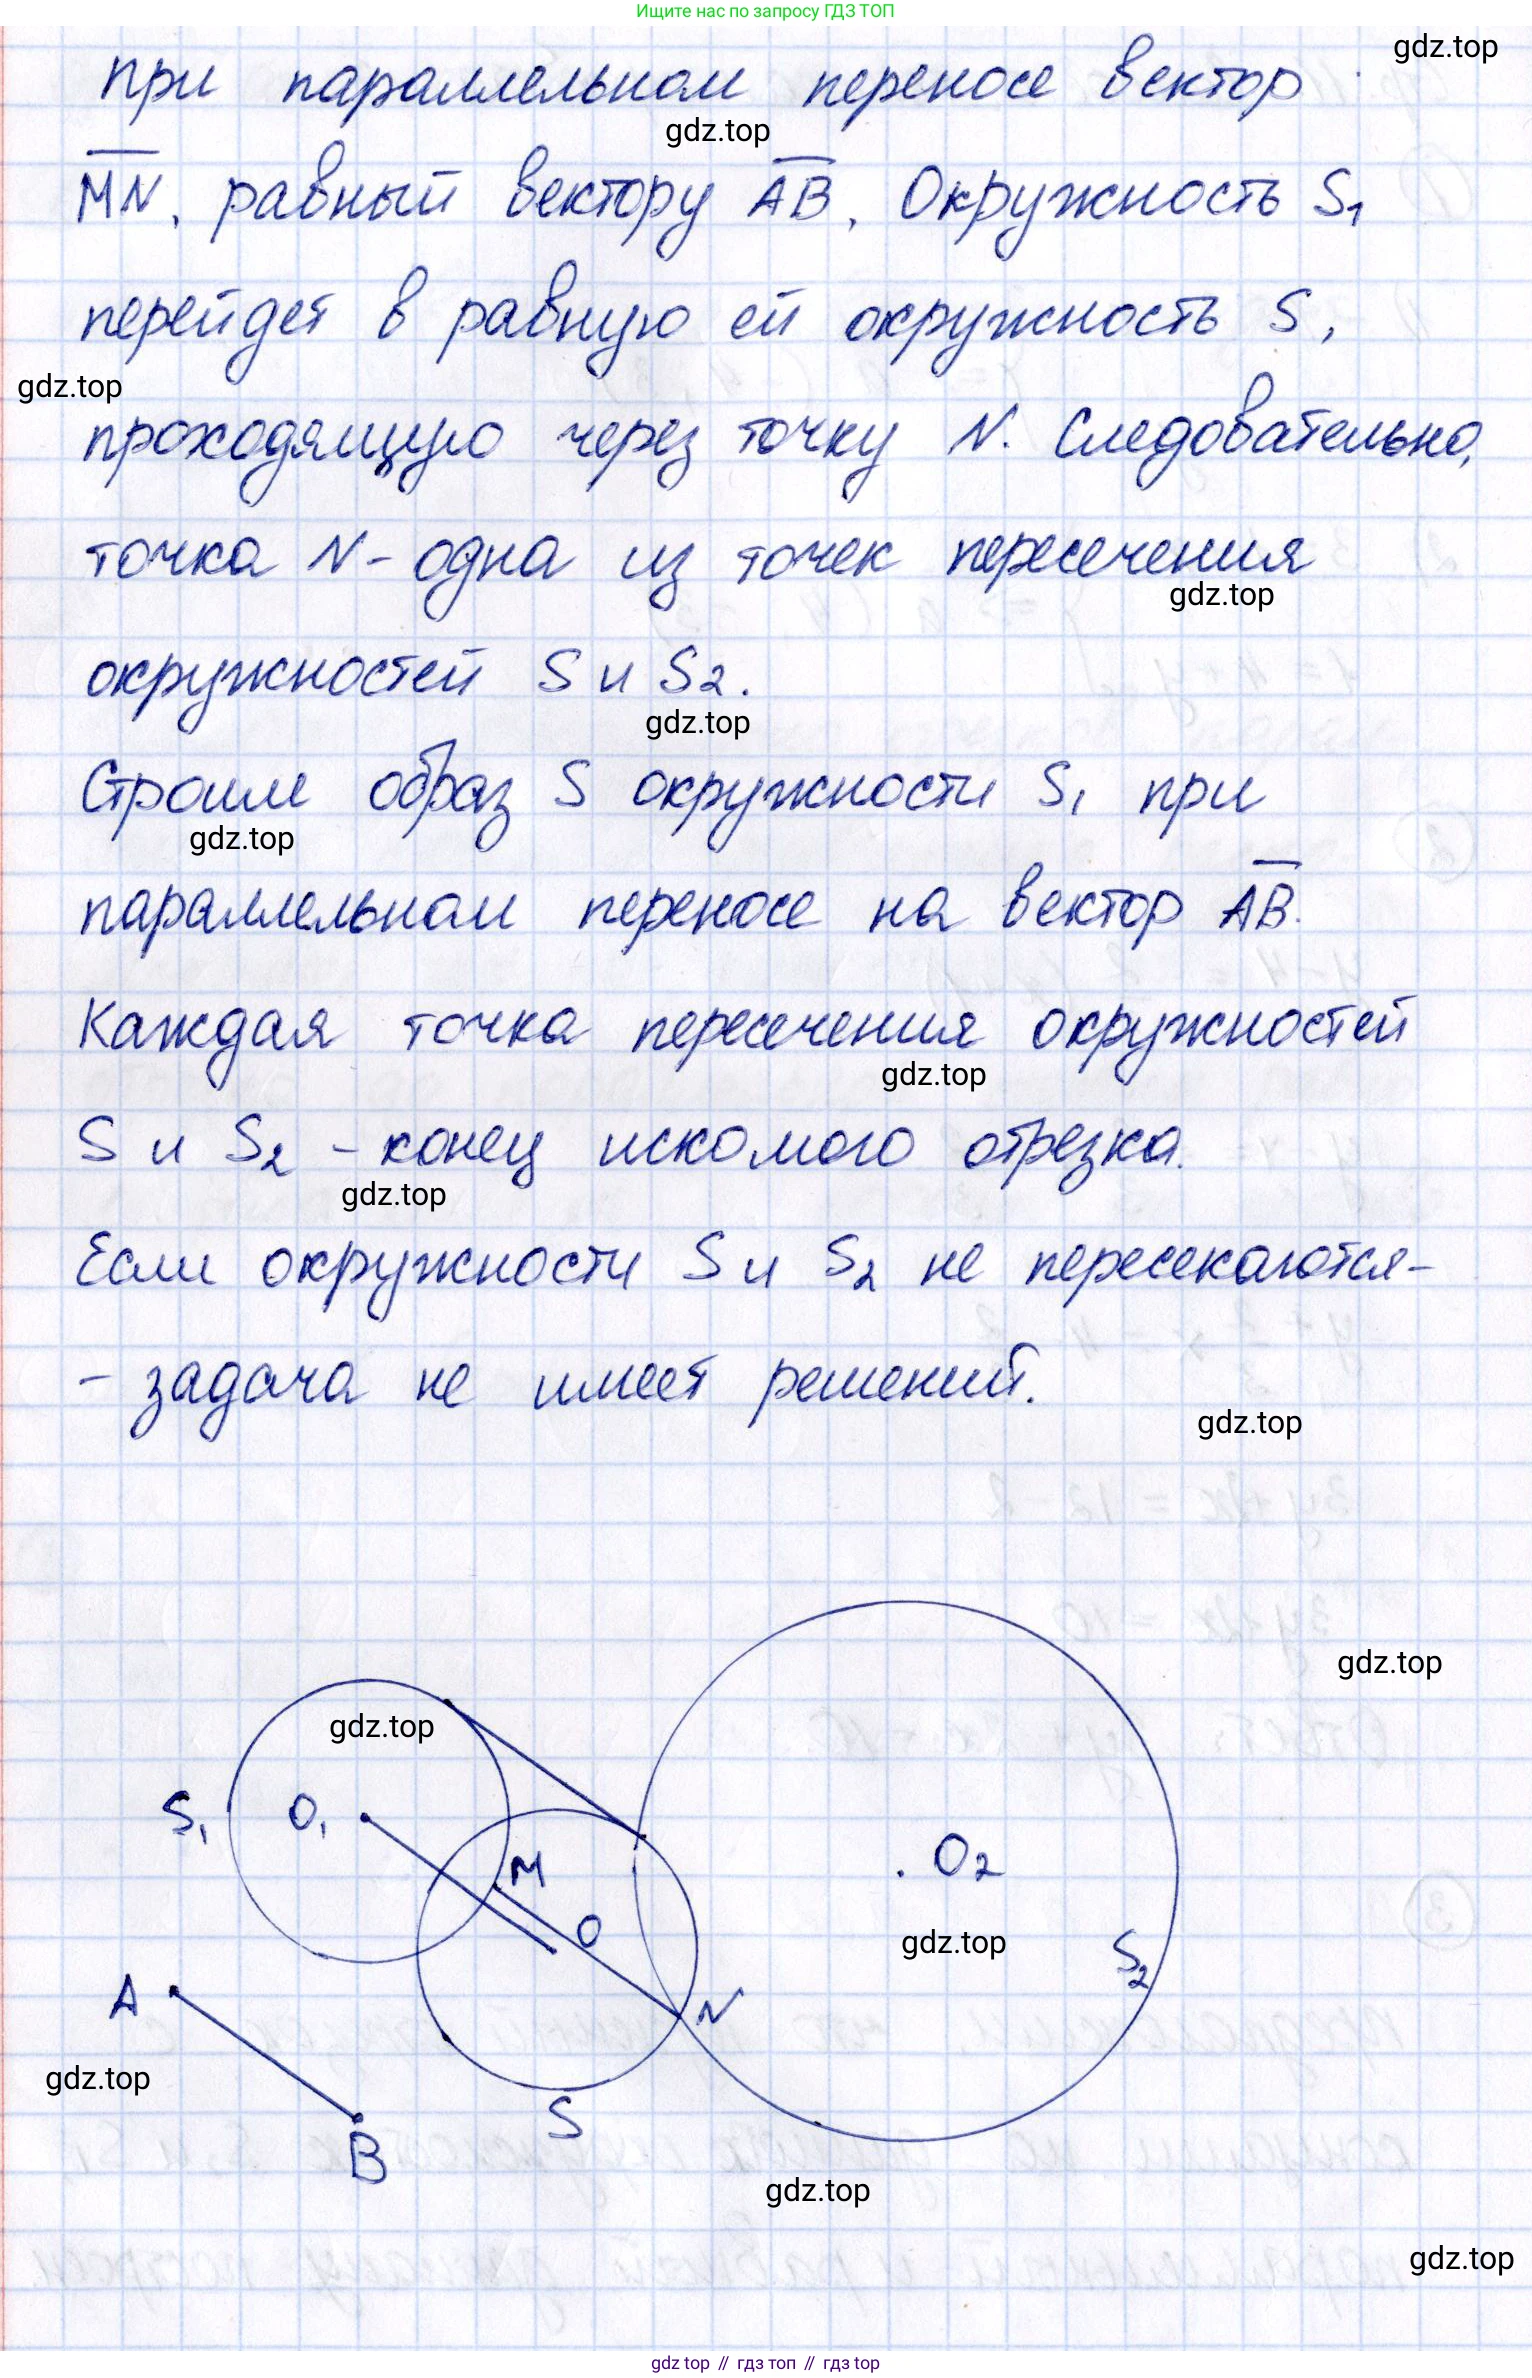 Ищите нас по запросу ГДЗ ТОП
gdz.top
при параллельном переносе вектор
gdz.top
MN, равный вектору AB. Окружность S₁
перейдет в равную ей окружность S,
gdz.top
проходящую через точку N. Следовательно,
точка N - одна из точек пересечения
gdz.top
окружностей S и S₂.
gdz.top
Строим образ S окружности S₁ при
gdz.top
параллельном переносе на вектор AB.
Каждая точка пересечения окружностей
gdz.top
S и S₂ - конец искомого отрезка.
gdz.top
Если окружности S и S₂ не пересекаются -
- задача не имеет решений.
gdz.top
gdz.top
gdz.top
S₁ O₁
M
O₂
O
gdz.top
S₂
A
N
gdz.top
S
B
gdz.top
gdz.top
gdz top // гдз топ // gdz top